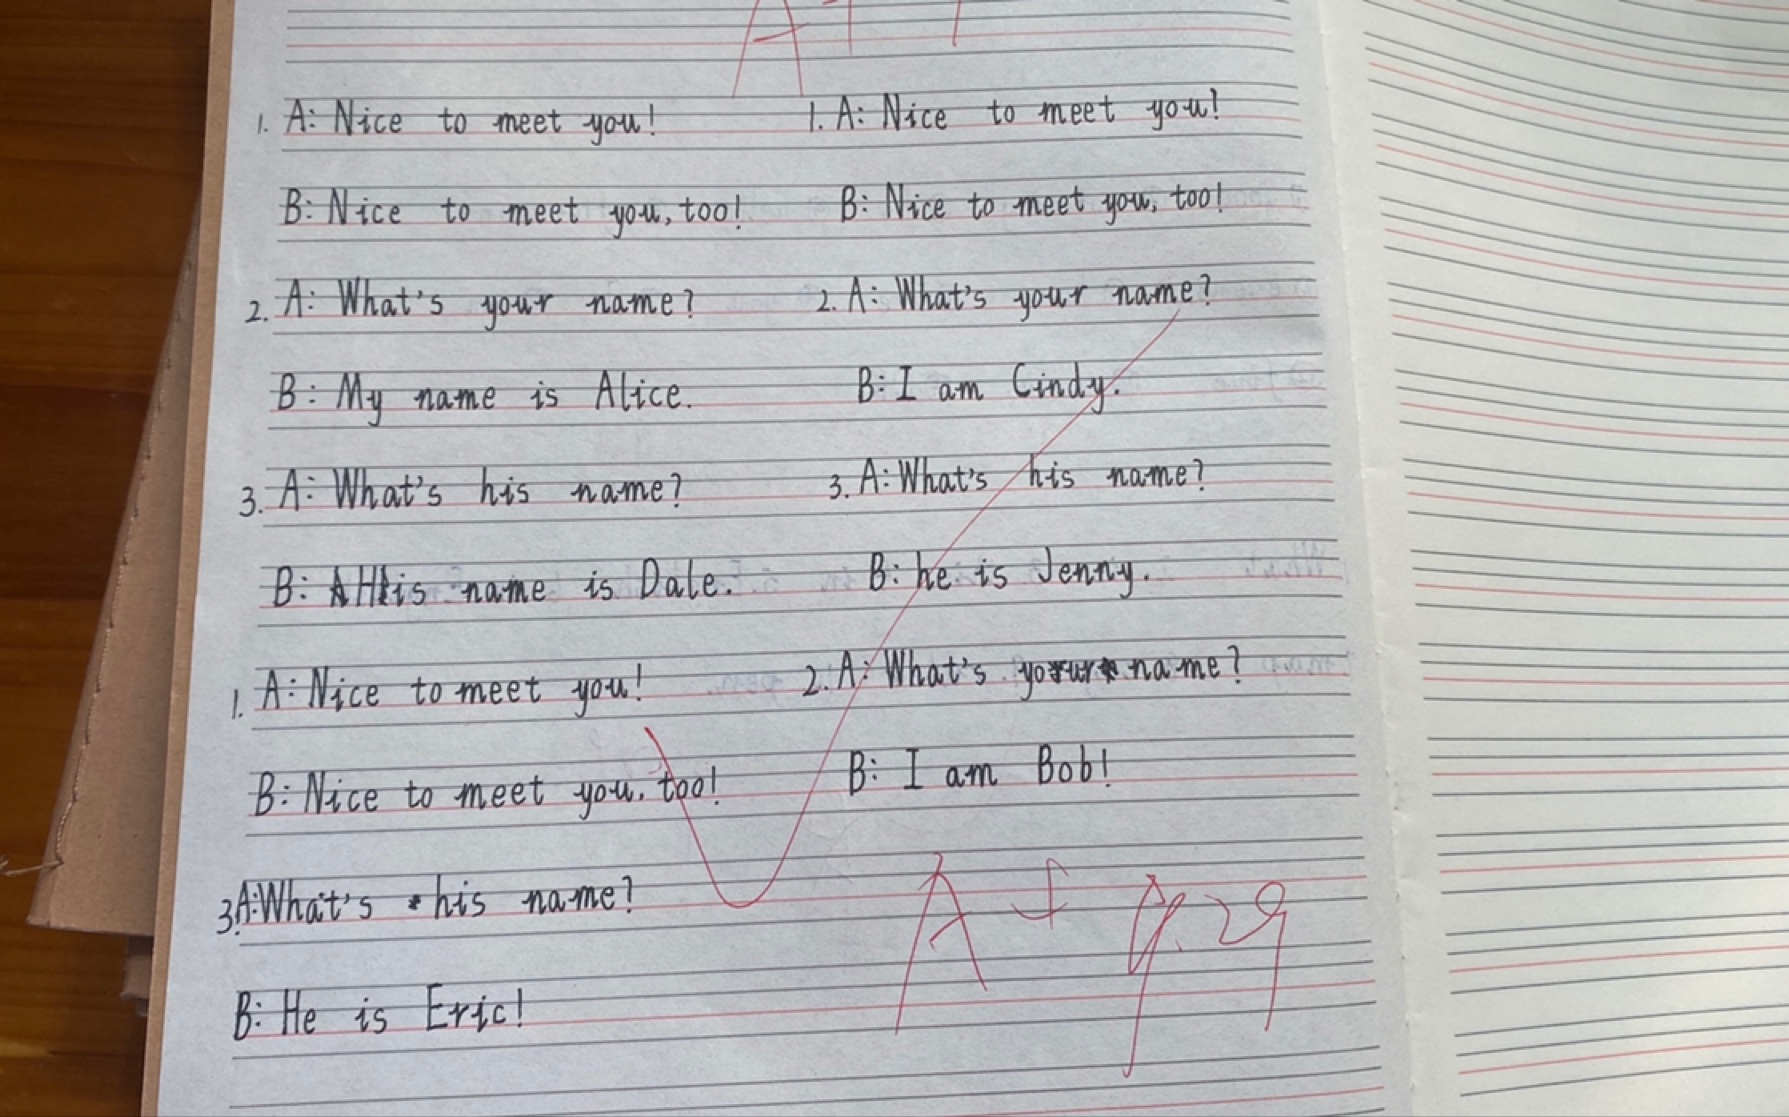 A+
1. A: Nice to meet you!
B: Nice to meet you, too!
2. A: What's your name?
B: My name is Alice.
3. A: What's his name?
B: His name is Dale.
1. A: Nice to meet you!
B: Nice to meet you, too!
2. A: What's your name?
B: I am Cindy.
3. A: What's his name?
B: he is Jenny.
1. A: Nice to meet you!
B: Nice to meet you, too!
2. A: What's your name?
B: I am Bob!
3. A: What's his name?
B: He is Eric!
A+ 9.29